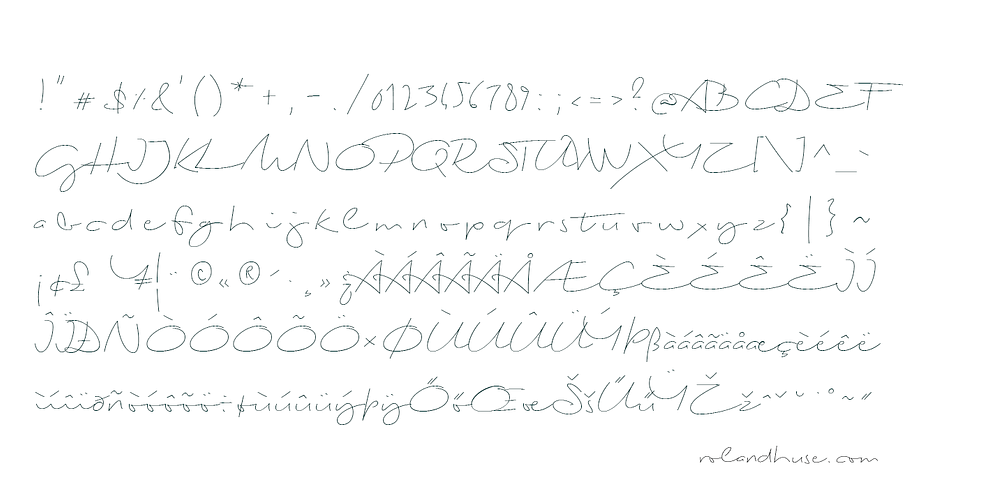 ! " # $ % & ' ( ) * + , - . / 0 1 2 3 4 5 6 7 8 9 : ; < = > ? @ A B C D E F
G H I J K L M N O P Q R S T U V W X Y Z [ \ ] ^ _ `
a b c d e f g h i j k l m n o p q r s t u v w x y z { | } ~
¡ ¢ £ ¥ ¦ ¨ © « ® ´ · ¸ » ¿ À Á Â Ã Ä Å Æ Ç È É Ê Ë Ì Í
Î Ï Ð Ñ Ò Ó Ô Õ Ö × Ø Ù Ú Û Ü Ý Þ ß à á â ã ä å æ ç è é ê ë
ì í î ï ð ñ ò ó ô õ ö ÷ ø ù ú û ü ý þ ÿ Ő ő Œ œ Š š Ű ű Ÿ Ž ž ˆ ˇ ˘ ˙ ˚ ˜ ˝
rolandhuse.com